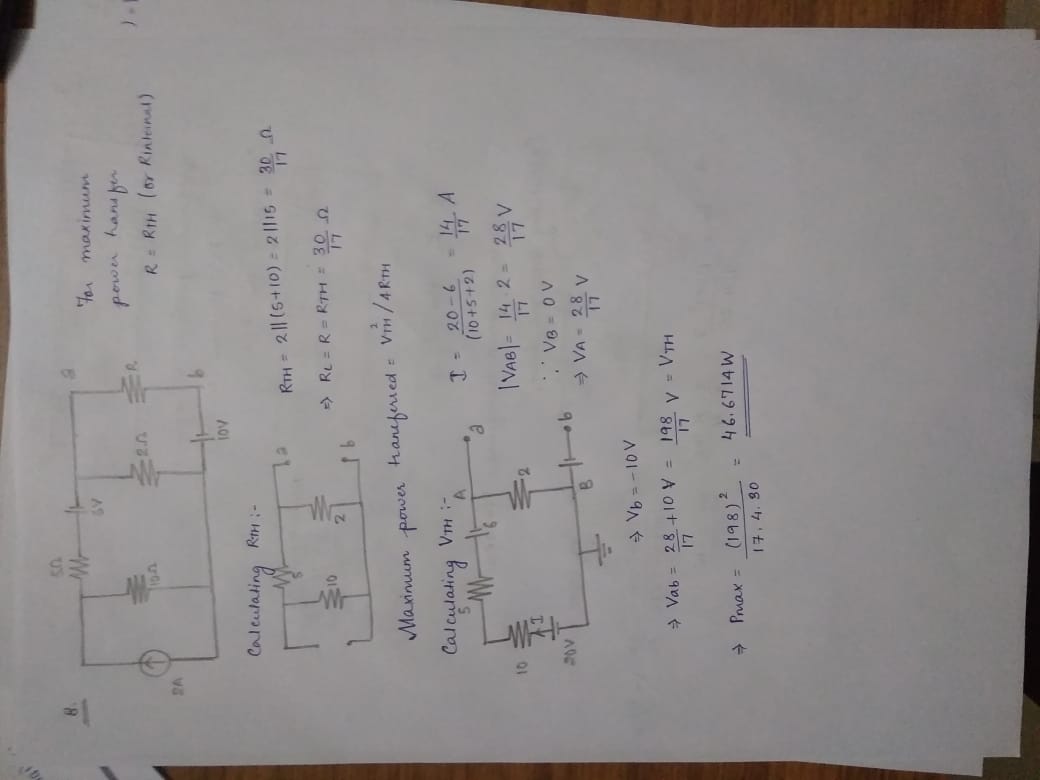 8.
5Ω
6V
a
10Ω
2Ω
R
2A
10V
b
For maximum
power transfer
R = RTH (or Rinternal)
Calculating RTH :-
5
a
10
2
b
RTH = 2||(5+10) = 2||15 = 30/17 Ω
⇒ RL = R = RTH = 30/17 Ω
Maximum power transferred = VTH²/4RTH
Calculating VTH :-
5
6
A
a
10
I
2
20V
B
b
I = 20-6/(10+5+2) = 14/17 A
|VAB| = 14/17 . 2 = 28/17 V
∵ VB = 0V
⇒ VA = 28/17 V
⇒ Vb = -10V
⇒ Vab = 28/17 + 10V = 198/17 V = VTH
⇒ Pmax = (198)²/17.4.30 = 46.6714W